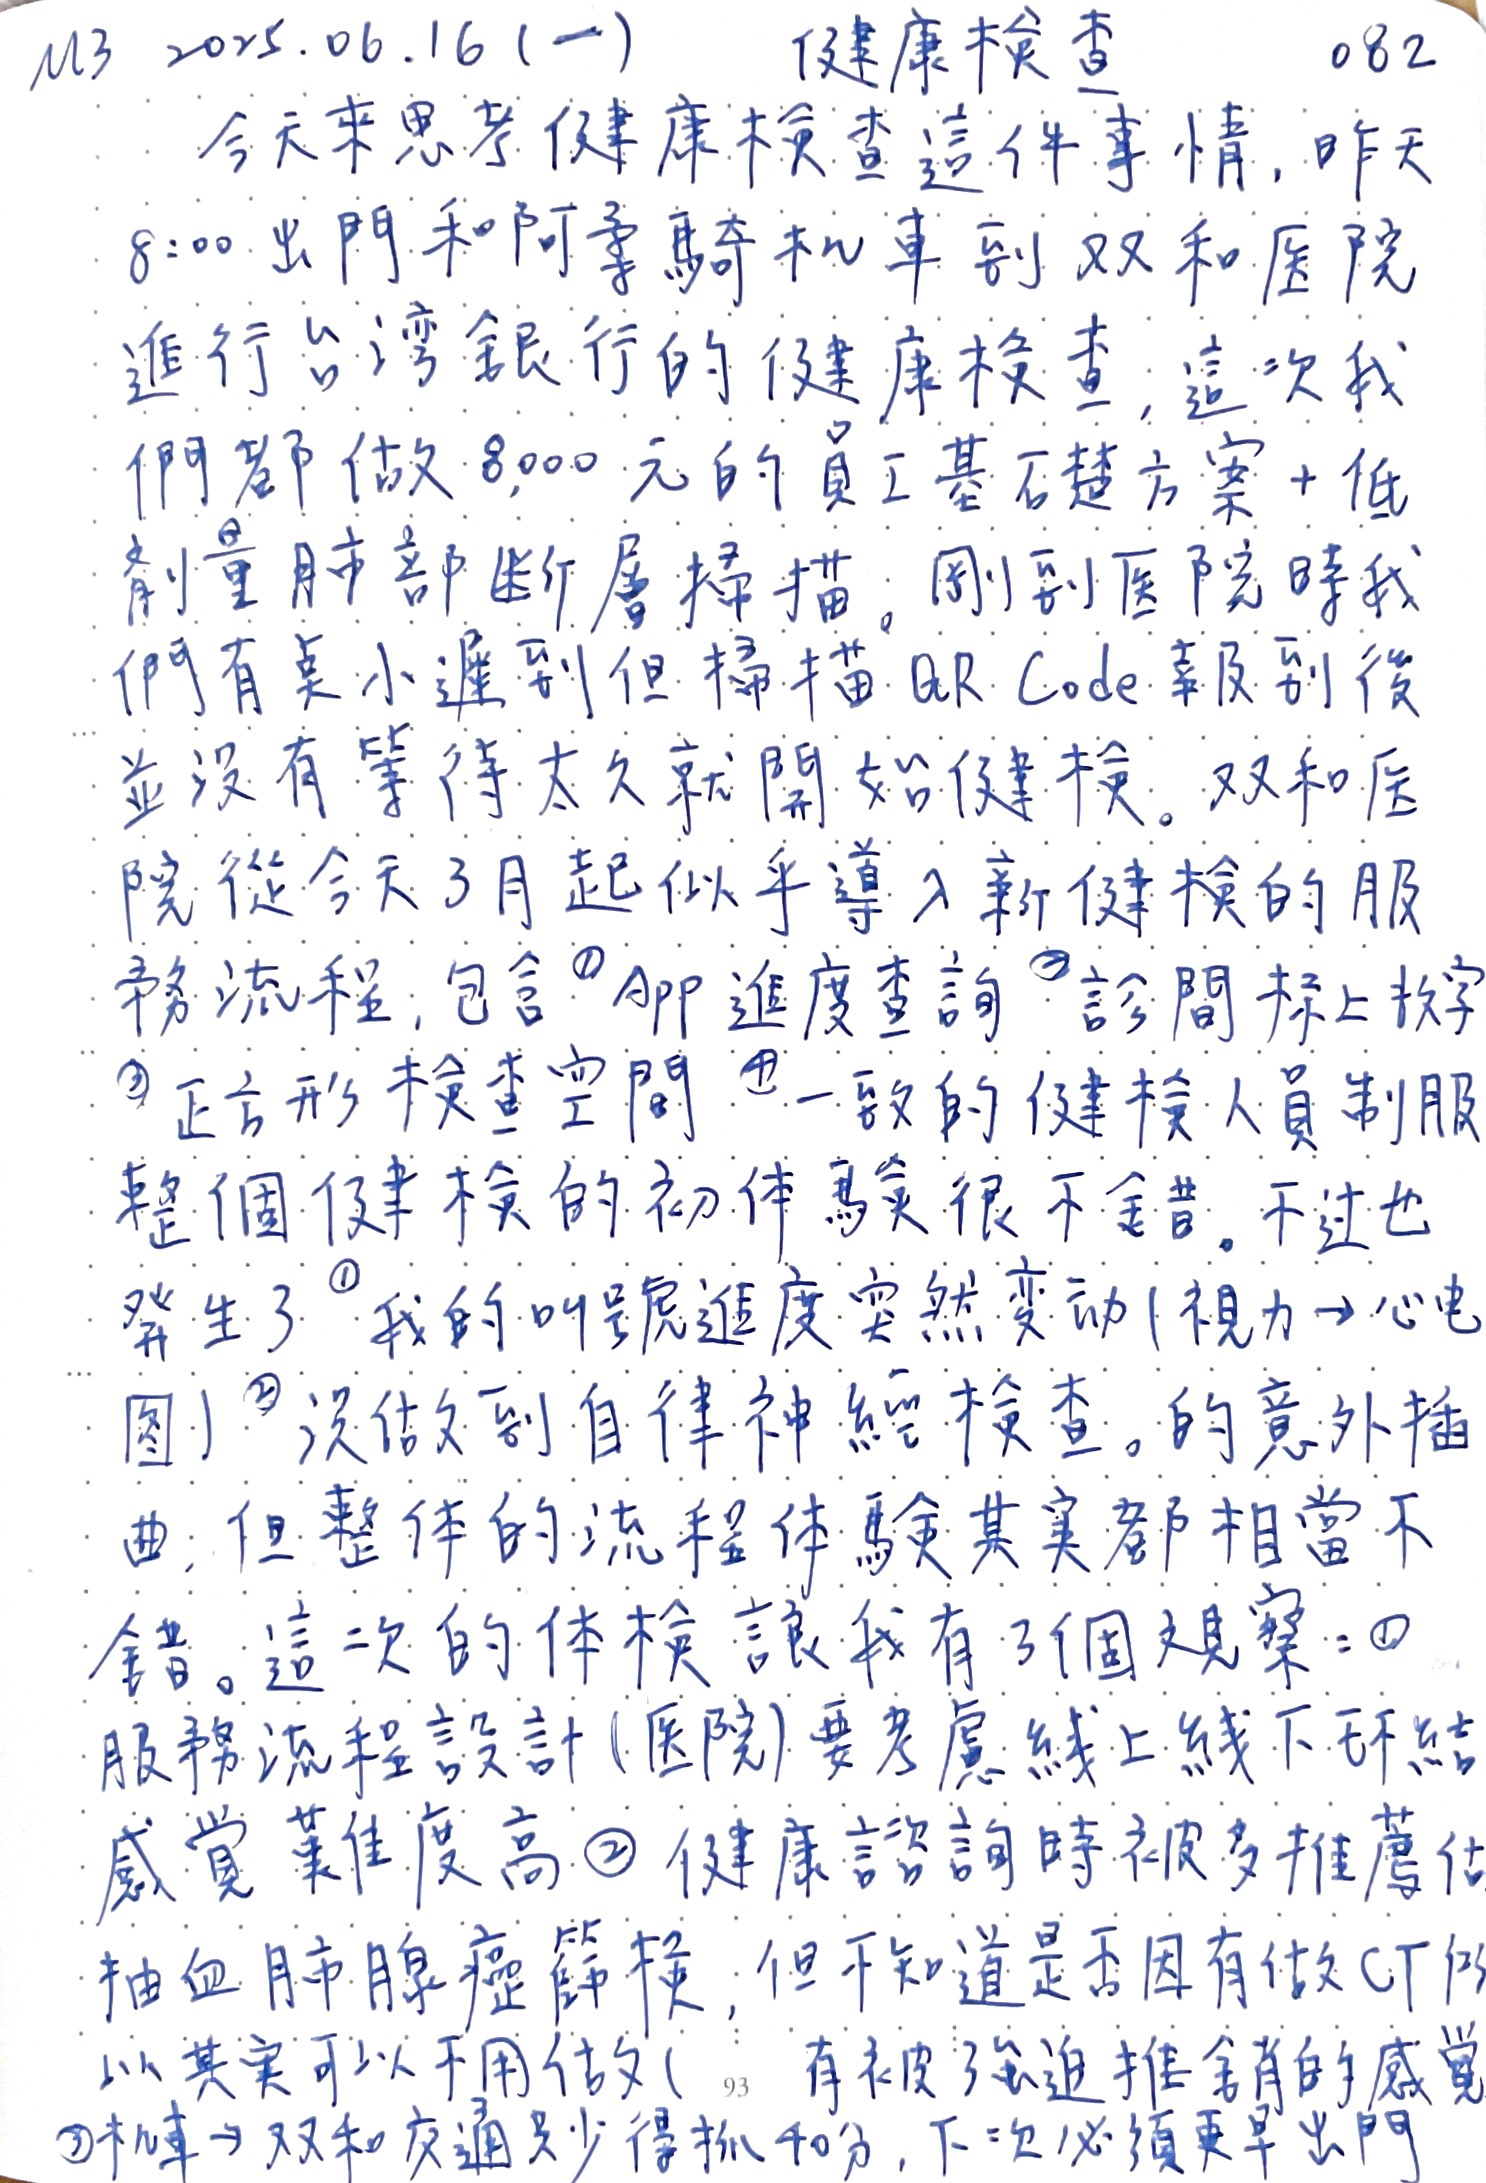 M3 2025.06.16(一) 健康檢查 082
今天來思考健康檢查這件事情,昨天
8:00出門和阿柔騎机車到双和医院
進行台湾銀行的健康檢查,這次我
們都做8,000元的員工基础方案+低
劑量肺部断層掃描。剛到医院時我
們有点小遲到但掃描QR Code報到後
並沒有等待太久就開始健檢。双和医
院從今天3月起似乎導入新健檢的服
務流程,包含①App進度查詢②診間标上数字
③正方形檢查空間④一致的健檢人員制服
整個健檢的初体驗很不錯。不过也
発生了①我的叫號進度突然変动(視力→心电
图)②沒做到自律神經檢查。的意外插
曲,但整体的流程体驗其实都相當不
錯。這次的体檢讓我有3個观察:①
服務流程設計(医院)要考慮线上线下环結
感覚難度高②健康諮詢時被多推薦做
抽血肺腺癌篩檢,但不知道是否因有做CT所
以其实可以不用做( 有被强迫推銷的感覚
93
③机車→双和交通至少得抓40分,下次必須更早出門